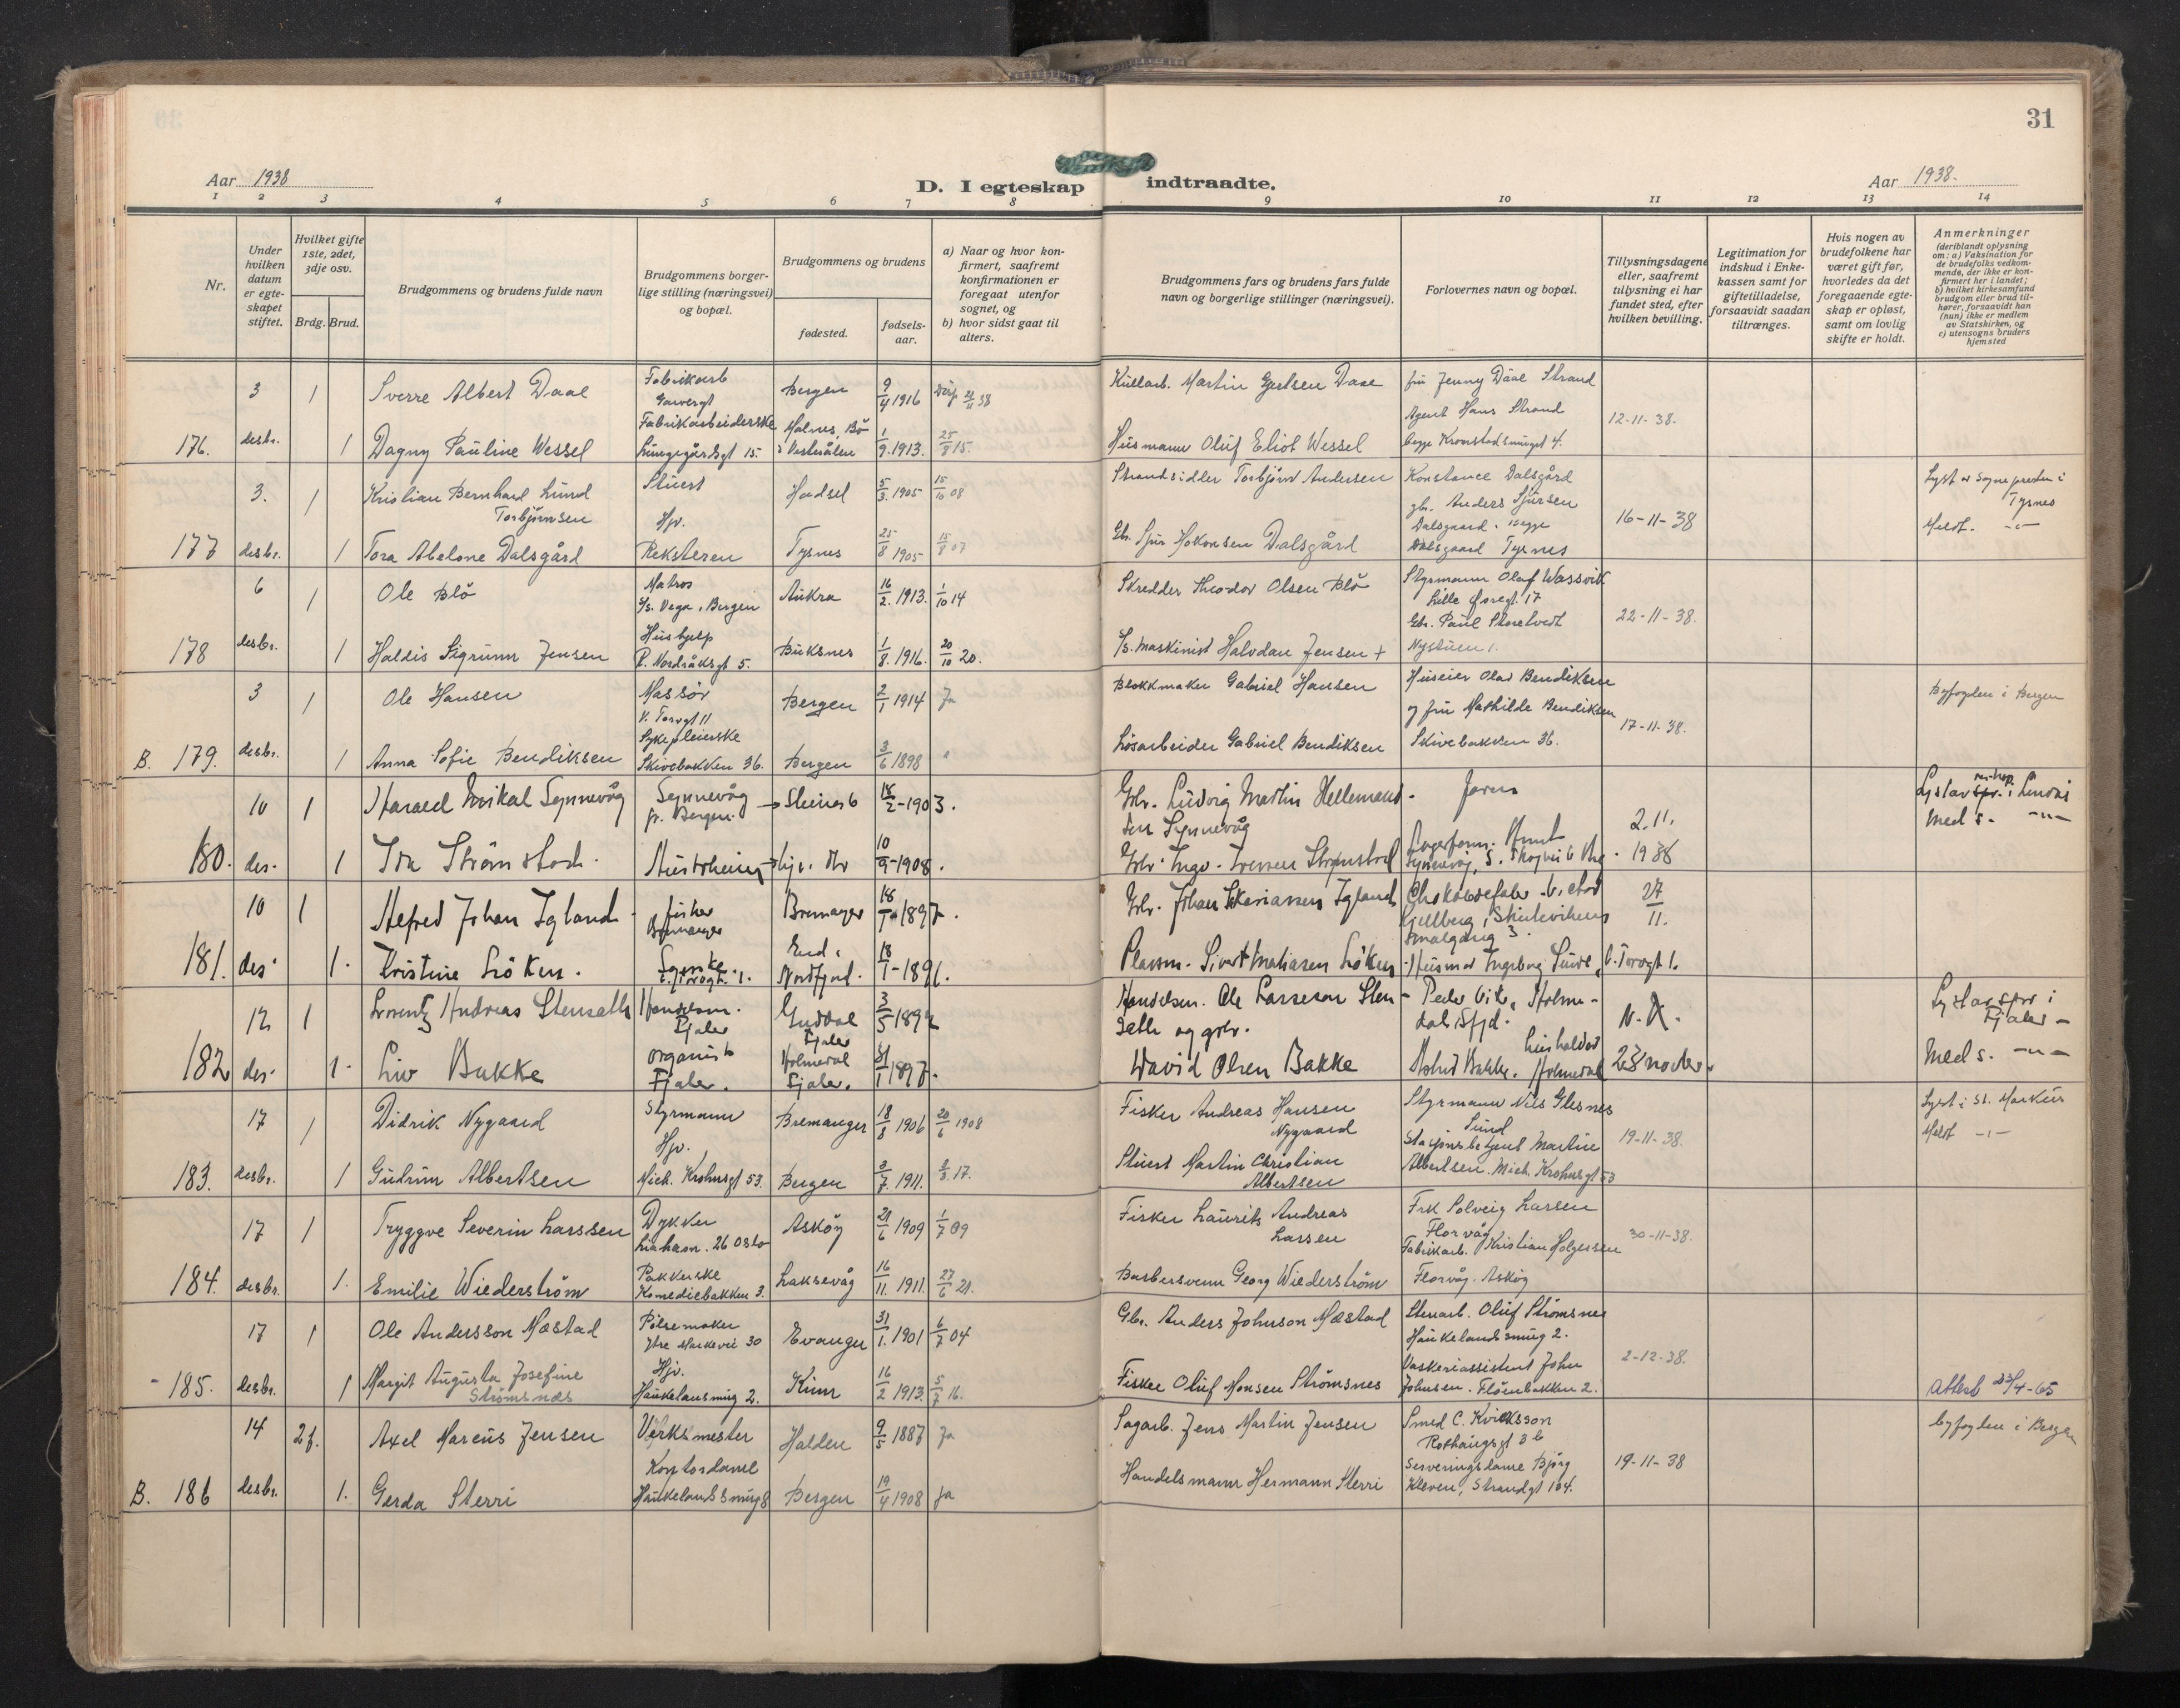 31
Aar 1938
D. I egteskap indtraadte.
Aar 1938.
1 2 3 4 5 6 7 8 9 10 11 12 13 14
Nr.
Under hvilken datum er egteskapet stiftet.
Hvilket gifte 1ste, 2det, 3dje osv.
Brdg. Brud.
Brudgommens og brudens fulde navn
Brudgommens borgerlige stilling (næringsvei) og bopæl.
Brudgommens og brudens
fødested.
fødselsaar.
a) Naar og hvor konfirmert, saafremt konfirmationen er foregaat utenfor sognet, og
b) hvor sidst gaat til alters.
Brudgommens fars og brudens fars fulde navn og borgerlige stillinger (næringsvei).
Forlovernes navn og bopæl.
Tillysningsdagene eller, saafremt tillysning ei har fundet sted, efter hvilken bevilling.
Legitimation for indskud i Enkekassen samt for giftetilladelse, forsaavidt saadan tiltrænges.
Hvis nogen av brudefolkene har været gift før, hvorledes da det foregaaende egteskap er opløst, samt om lovlig skifte er holdt.
Anmerkninger
(deriblandt oplysning om: a) Vaksination for de brudefolks vedkommende, der ikke er konfirmert her i landet; b) hvilket kirkesamfund brudgom eller brud tilhører, forsaavidt han (hun) ikke er medlem av Statskirken, og c) utensogns bruders hjemsted
3 1 Sverre Albert Daae Fabrikarb Bergen 9/4 1916 Martin Gertsen Daae fru Jenny Daae Strand
Agent Hans Strand 12-11-38.
Fabrikarbeiderske Malnes, Bø
176. desbr. 1 Dagny Pauline Wessel Lungegårdsgt 15. i Vesterålen 1/9 1913. 25/8 15. Husmann Oluf Eliot Wessel begge Kronstadsmuget 4.
3. 1 Kristian Bernhard Lund Torbjørnsen Stuert Hadsel 5/3 1905 15/10 08 Strandsidder Torbjørn Andersen Konstance Dalsgård Lyst av sogneprest i Tysnes
gbr. Anders Sjursen 16-11-38
Hjv. Dalsgaard. begge Meldt. -"-
177 desbr. 1 Tora Abelone Dalsgård Reksteren Tysnes 25/8 1905 15/8 07 Gbr. Sjur Hakonsen Dalsgård Dalsgaard Tysnes
6 1 Ole Blø Matros Aukra 16/2. 1913. 1/10 14 Skredder Theodor Olsen Blø Styrmann Olaf Wassvik
S/s. Vega, Bergen Lille Øvregt. 17
Hushjelp Gbr. Paul 22-11-38.
178 desbr. 1 Haldis Sigrunn Jensen R. Nordråksgt 5. Buksnes 1/8. 1916. 20/10 20. Maskinist Halvdan Jensen + Nystuen 1.
3 1 Ole Hansen Massør Bergen 2/1 1914 Ja Blokkmaker Gabriel Hansen Huseier Olav Bendiksen Byfogden i Bergen
V. Torvgt 11 og fru Mathilde Bendiksen
Sykepleierske 17-11-38.
B. 179. desbr. 1 Anna Sofie Bendiksen Skivebakken 36. Bergen 3/6 1898 " Løsarbeider Gabriel Bendiksen Skivebakken 36.
10 1 Harald Mikal Synnevåg Synnevåg 18/2-1903. Gbr. Ludvig Martin Hellemandsen Synnevåg
pr. Bergen. 2.11. Med s. -"-
180. des. 1 Ida Strømstad. Austrheim 10/9-1908. Strømstad 1938
10 1 Alfred Johan Igland fisker Bremanger 18/1-1897. Gbr. Johan Igland 27/11.
Bremanger Smalgang 3.
181. des. 1. Kristine Løken. Nordfjord. 18/1-1891. Plassm. Sivert Matiasen Løken V. Torvgt 1.
12 1 Lorentz Andreas Stensæth Handelsm. Guddal 3/5 1892 Handelsm. Ole Larseson Stensæth og gbr. Lyst av spr i Fjaler -
Fjaler Fjaler
182 des. 1. Liv Bakke organist Holmedal 1897. David Olsen Bakke Astrid Bakke. Holmedal 23 novbr. Med s. -"-
Fjaler. Fjaler.
17 1 Didrik Nygaard Styrmann Bremanger 18/8 1906 20/6 1908 Fisker Andreas Hansen Nygaard Styrmann Nils Glesnes Lyst i St. Markus
Hjv. Sund 19-11-38. Meldt -"-
183. desbr. 1 Gudrun Albertsen Mich. Krohnsgt 53. Bergen 3/7. 1911. 2/3 17. Stuert Martin Christian Albertsen Stasjonsbetjent Martin Albertsen. Mich. Krohnsgt 53
17 1 Tryggve Severin Larssen Dykker Askøy 21/6 1909 1/7 09 Fisker Laurits Andreas Larsen Frk Solveig Larsen
26 Oslo Florvåg 30-11-38.
Pakkerske Fabrikarb. Kristian Holgersen
184. desbr. 1. Emilie Wiederstrøm Komediebakken 3. Laksevåg 16/11. 1911. 27/6 21. Barbersvenn Georg Wiederstrøm Florvåg. Askøy
17 1 Ole Andersson Mæstad Pølsemaker Evanger 31/1. 1901 6/7 04 Gbr. Anders Johnson Mæstad Stenarb. Oluf Strømsnes
Ytre Markevei 30 Haukelandsmug 2.
Hjv. Vaskeriassistent John 2-12-38.
185. desbr. 1 Margit Augusta Josefine Strømsnæs Haukelandsmug 2. Kinn 16/2 1913. 5/7 16. Fisker Oluf Monsen Strømsnes Johnsen. Fløenbakken 2. Attest 23/4-65
14 2f. Axel Marcus Jensen Verksmester Halden 9/5 1887 Ja Sagarb. Jens Martin Jensen Smed C. Kvicksson byfogden i Bergen
Rothaugsgt 3 b
Kontordame Serveringsdame Bjørg 19-11-38
B. 186 desbr. 1. Gerda Sterri Haukelandsmug 8 Bergen 19/4 1908 Ja Handelsmann Hermann Sterri Kleven, Strandgt 104.